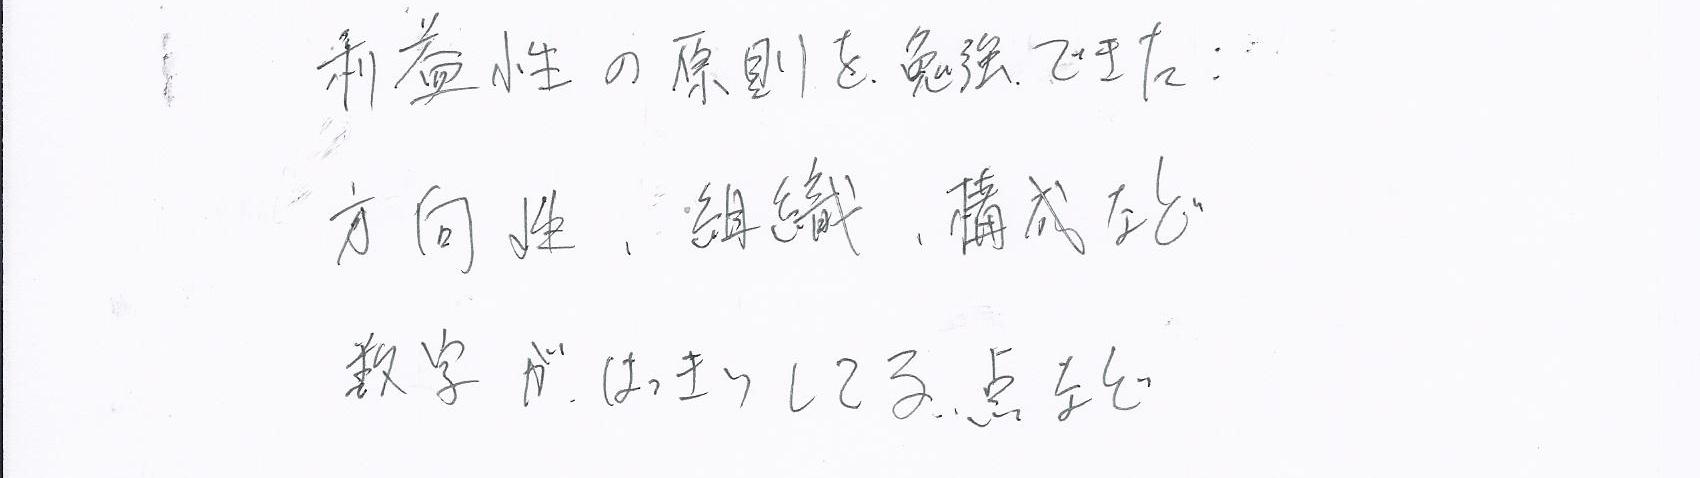 利益性の原則を勉強できた:
方向性、組織、構成など
数字がはっきりしてる点など